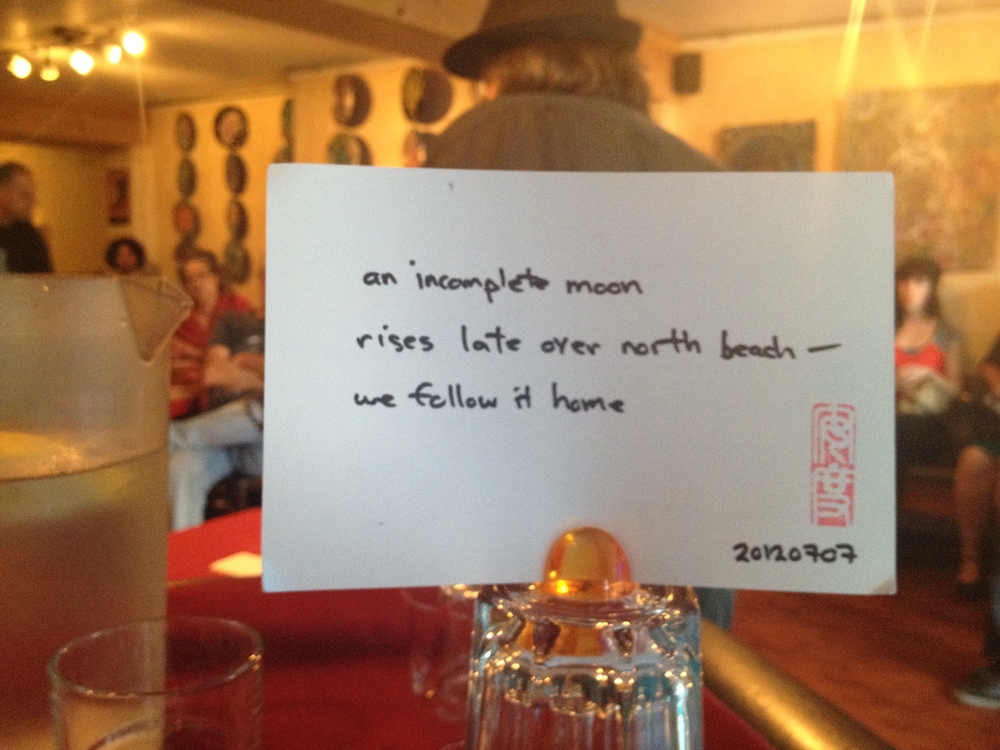 an incomplete moon
rises late over north beach —
we follow it home
20120707